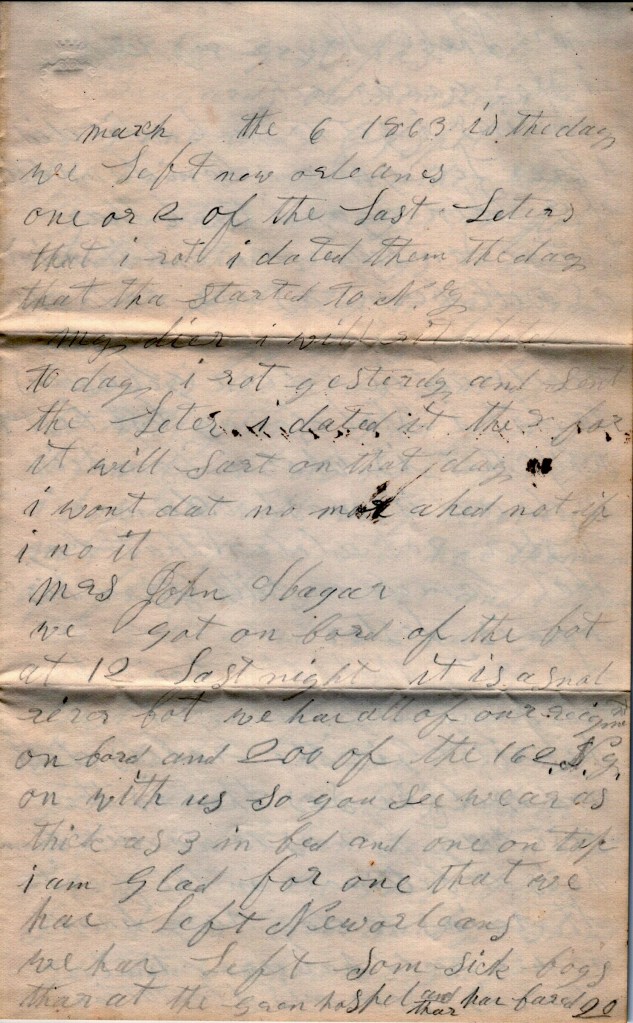 march the 6 1863 is the day
we Left new orleans
one or 2 of the Last Leters
that i rot i dated them the day
that tha started to N. Y
my dier i will
to day i rot yesterdy and sent
the Leter i dated it the 2 for
it will sart on that day
i wont dat no more ahed not if
i no it
mrs John
we got on bord of the bot
at 12 Last night it is a smal
river bot we hav all of our
on bord and 200 of the 162 N.y.
on with us so you see we ar as
thick as 3 in bed and one on top
i am Glad for one that we
hav Left Neworleans
we hav Left som sick boys
thar at the hospel and thar hav